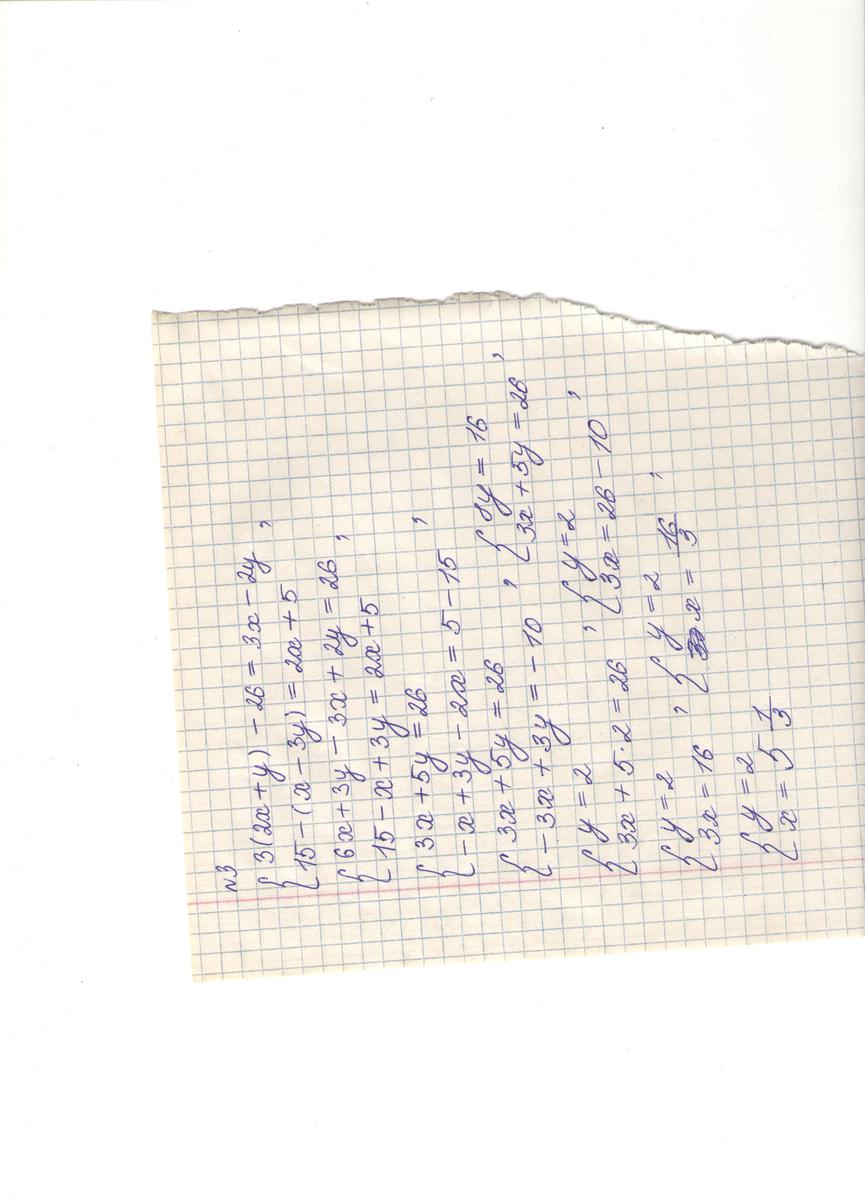 №3
{ 3(2x+y) - 26 = 3x - 2y ,
{ 15 - (x - 3y) = 2x + 5
{ 6x + 3y - 3x + 2y = 26 ,
{ 15 - x + 3y = 2x + 5
{ 3x + 5y = 26 ,
{ - x + 3y - 2x = 5 - 15
{ 3x + 5y = 26 , { 8y = 16 ,
{ - 3x + 3y = - 10 { 3x + 5y = 26
{ y = 2 , { y = 2 ,
{ 3x + 5·2 = 26 { 3x = 26 - 10
{ y = 2 , { y = 2 ,
{ 3x = 16 { x = 16/3
{ y = 2
{ x = 5 1/3